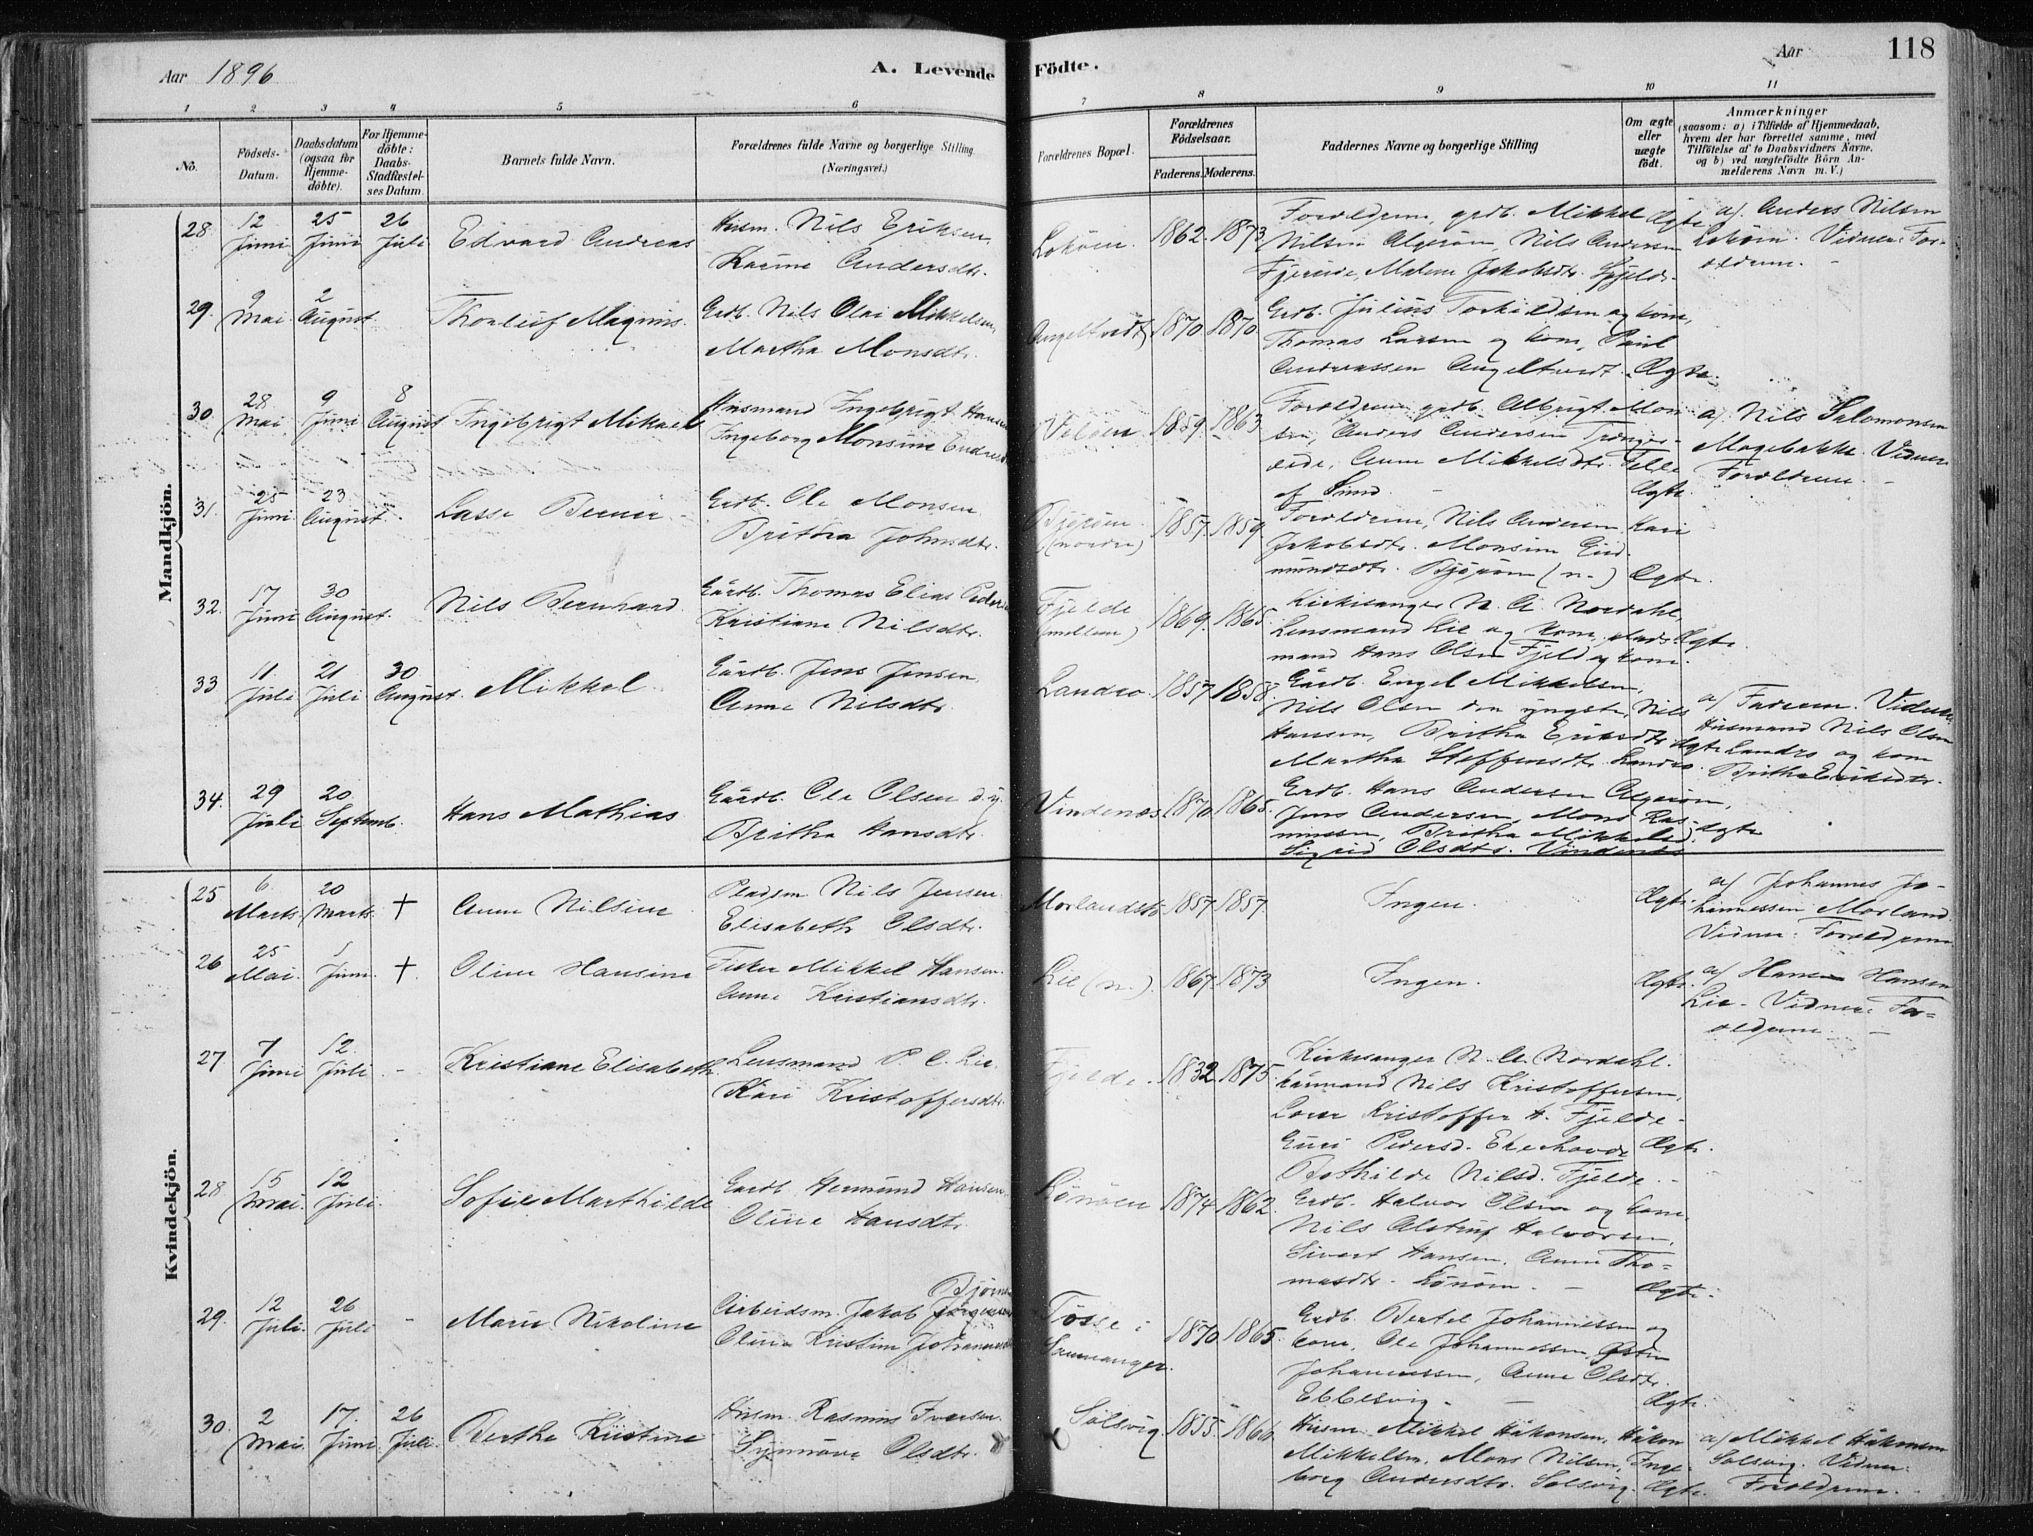 Aar 1896
A. Levende Födte.
Aar
118
1 2 3 4 5 6 7 8 9 10 11
No.
Födsels-Datum.
Daabsdatum (ogsaa for Hjemmedöbte).
For Hjemmedöbte: Daabs-Stadfæstelses Datum.
Barnets fulde Navn.
Forældrenes fulde Navne og borgerlige Stilling (Næringsvei.)
Forældrenes Bopæl.
Forældrenes Födselsaar.
Faderens. Moderens.
Faddernes Navne og borgerlige Stilling
Om ægte eller uægte födt.
Anmærkninger
(saasom: a) i Tilfælde af Hjemmedaab,
hvem der har forrettet samme, med
Tilföielse af to Daabsvidners Navne,
og b) ved uægtefödte Börn An-
melderens Navn m. V.)
Mandkjön.
28. 12 Juni 25 Juni 26 Juli Edvard Andreas
Husm. Nils Eriksen,
Karine Andersdtr.
Lokøen. 1862. 1873
Forældrene, grdb. Mikkel
Nilsen Algerøen, Nils Andersen
Fjereide, Malene Jakobsdtr.
Ægte
a/ Anders Nilsen
Lokøen. Vidner: For-
ældrene. -
29. 9 Mai 2 August Thorleif Magnus.
Grdb. Nils Olai Mikkelsen,
Martha Monsdtr.
Angeltvedt 1870 1870
Grdb. Julius Torkildsen og kone,
Thomas Larsen og kone, Paul
Andreassen Angeltvedt. Ægte.
30. 28 Mai 9 Juni 8 August Ingebrigt Mikael
Husmand Ingebrigt Hansen
Ingeborg Monsine
1859. 1863
Forældrene, grdb. Albrigt Mon-
sen, Anders Andersen
eide, Anne Mikkelsdtr. Telle
af Sund. - Ægte
a/ Nils Salomonsen
Møgebakke. Vidner
Forældrene. -
31. 25 Juni 23 August. Lasse Berner
Grdb. Ole Monsen
Britha Johnsdtr.
Bjørøen (nordre) 1857. 1859.
Forældrene, Nils Andersen, Kari
Jakobsdtr. Monsine Gud-
mundsdtr. Bjørøen (n.) Ægte.
32. 17 Juni 30 August. Nils Bernhard
Gårdb. Thomas Elias Peders
Kristiane Nilsdtr.
Fjelde (mellem) 1869. 1865
Kirkesanger N. A. Nordahl,
Lensmand Lie og kone, plads-
mand Hans Olsen Fjeld og kone.
Ægte.
33 11 Juli 21 Juli 30 August. Mikkel.
Gårdb. Jens Jensen,
Anne Nilsdtr.
Landro. 1857. 1858.
Gårdb. Engel Mikkelsen,
Nils Olsen den yngste, Nils
Hansen, Britha Eriksdtr
Martha Steffensdtr. Landro.
Ægte
a/ Faderen. Vidner
Husmand Nils Olsen
Landro og kone
Britha Eriksdtr.
34. 29 Juli 20 Septemb. Hans Mathias
Gårdb. Ole Olsen d.y.
Britha Hansdtr.
Vindenæs 1870. 1865.
Grdb. Hans Andersen Algerøen,
Jens Andersen, Mons Ras-
mussen, Britha Mikkelsd,
Sigrid Olsdtr. Vindenæs
Ægte
Kvindekjön.
25 6. Marts 20 Marts. + Anne Nilsine
Pladsm Nils Jensen
Elisabeth Olsdtr.
1857. 1857.
Ingen.
Ægte.
a/ Johannes Jo-
hannessen Morland
Vidner: Forældrene
26 25 Mai. 1 Juni. + Oline Hansine
Fisker Mikkel Hansen.
Anne Kristiansdtr.
Lie (n.) 1867. 1873
Ingen.
Ægte.
a/ Hans Hansen
Lie. Vidner: For-
ældrene. -
27 7 Juni 12. Juli - Kristiane Elisabeth
Lensmand P. C. Lie
Kari Kristoffersdtr.
Fjelde. 1832 1875.
Kirkesanger N. A. Nordahl.
Nils Kristoffersen,
Kristoffer H. Fjelde -
Guri Pedersd. Ekerhovde
Bothilde Nilsd. Fjelde. -
Ægte.
28 15 Mai. 12 Juli. Sofie Marthilde
Gardb. Hermund Hansen.
Oline Hansdtr.
Lønøen 1874 1862.
Grdb. Halvor Olsen og kone.
Nils Alstrup Halvorsen,
Sivert Hansen. Anne Tho-
masdtr. Lønøen. - Ægte.
29. 12 Juli. 26 Juli - Marie Nikoline
Arbeidsm. Jakob Jørgensen Bjørnes
Oline Kristine Johannesdtr
Tøsse i Samnanger. 1870 1865.
Grdb. Bertel Johannessen og
kone, Ole Johannessen,
Johannessen, Anne Olsdtr.
Ebbesvig. - Ægte.
30. 2 Mai 17. Juni 26 Juli. Berthe Kristine
Husm. Rasmus Iversen.
Synnøve Olsdtr.
Solsvig 1855. 1866
Husm. Mikkel Håkonsen, Håkon
Mikkelsen, Mons Nilsen, Inge-
borg Andersdtr. Solsvig. Ægte.
a/ Mikkel Håkonsen
Solsvig. Vidner:
Forældrene. -